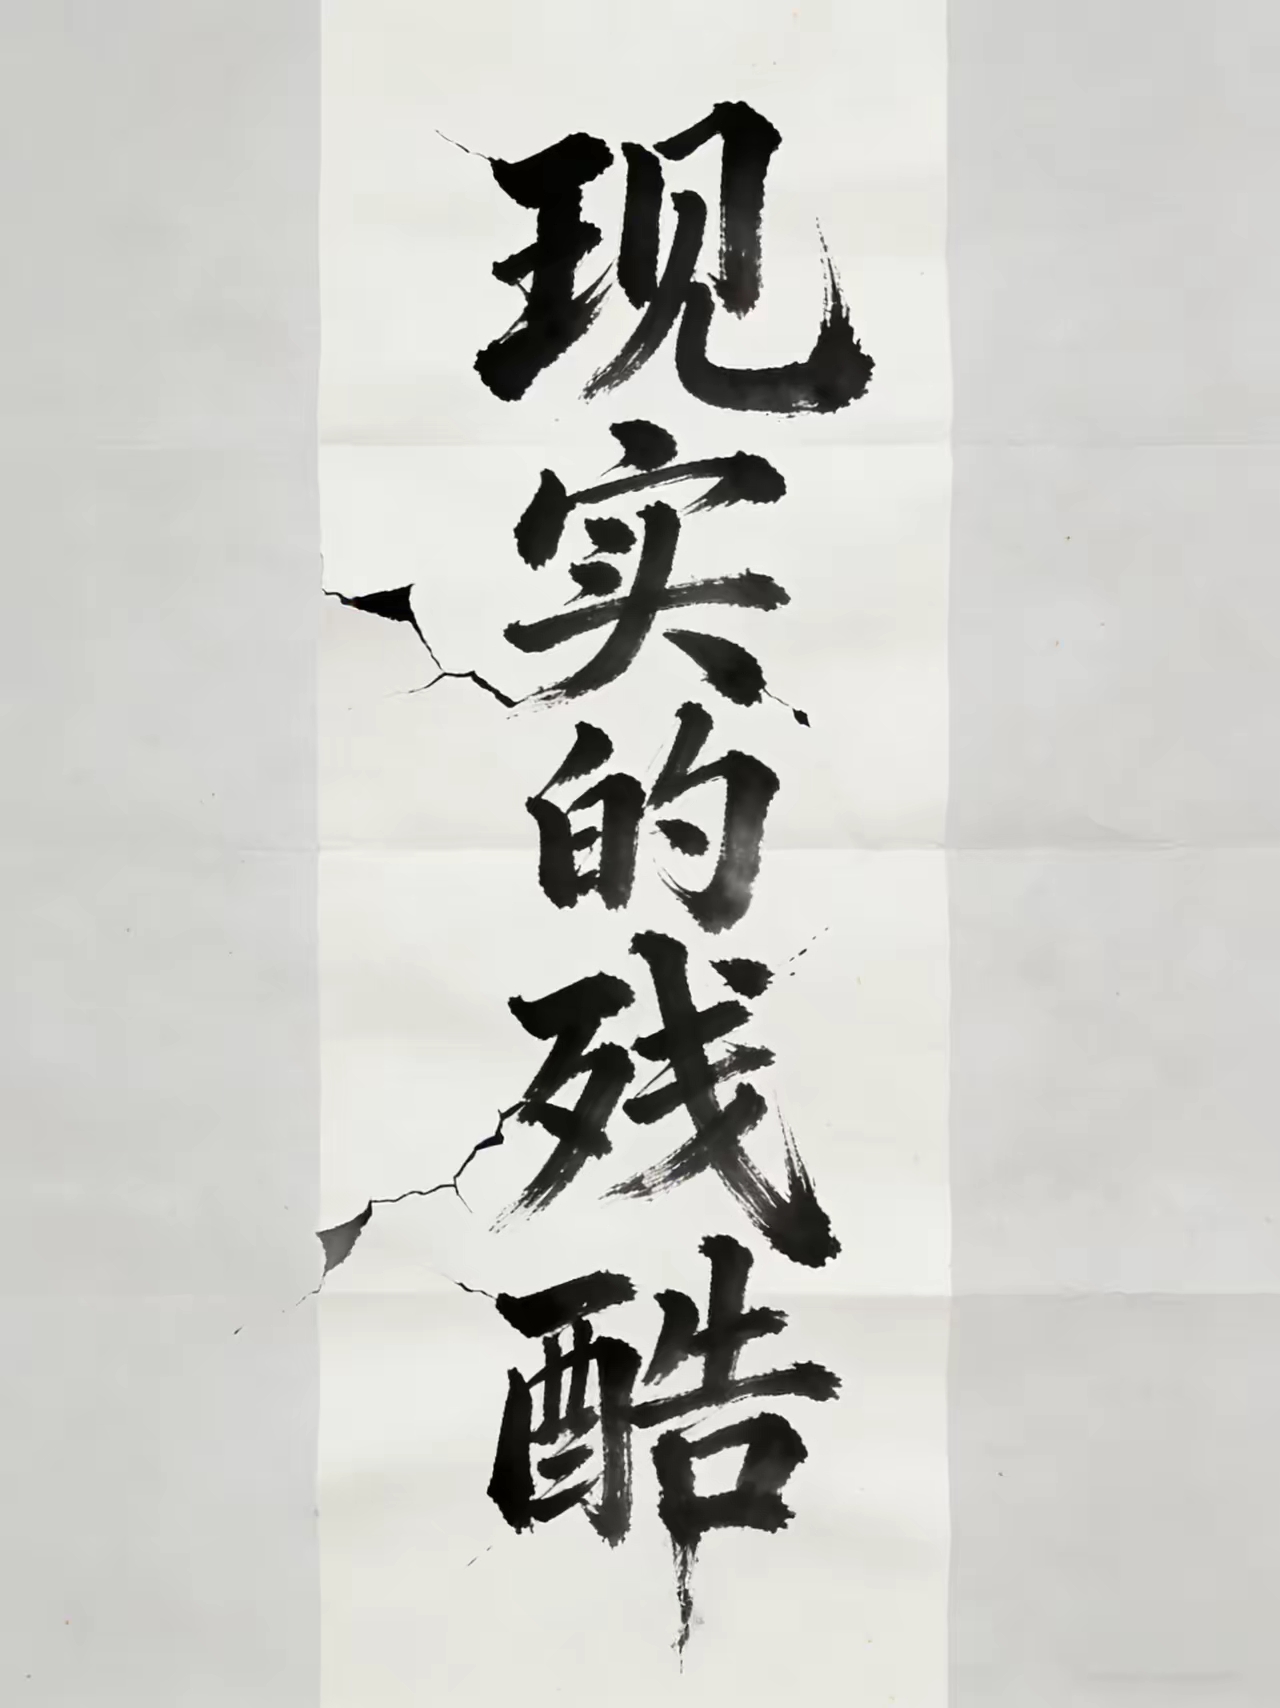 现实的残酷